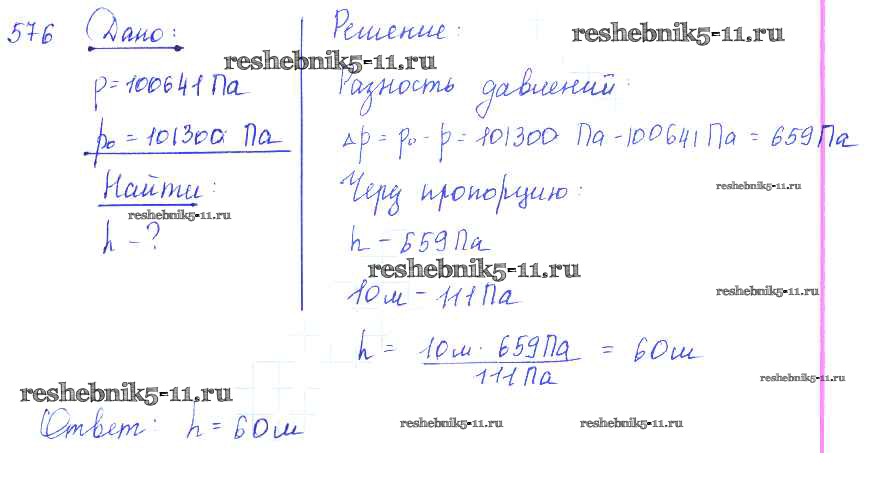 576 Дано:
reshebnik5-11.ru
p = 100641 Па
p₀ = 101300 Па
Найти:
reshebnik5-11.ru
h - ?
Решение:
reshebnik5-11.ru
Разность давлений:
Δp = p₀ - p = 101300 Па - 100641 Па = 659 Па
reshebnik5-11.ru
Через пропорцию:
h - 659 Па
reshebnik5-11.ru
10м - 111 Па
reshebnik5-11.ru
h = 10м · 659 Па / 111 Па = 60м
reshebnik5-11.ru
reshebnik5-11.ru
Ответ: h = 60м
reshebnik5-11.ru
reshebnik5-11.ru